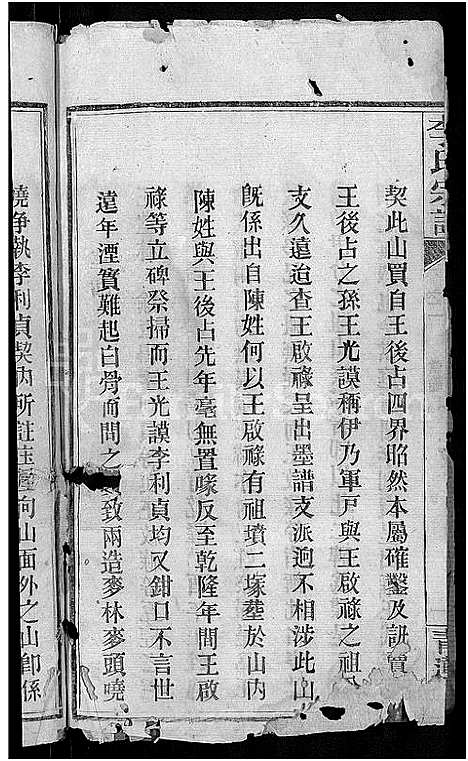 李氏宗譜
契此山買自王後占四界昭然本屬確鑿及訊買
王後占之孫王光謨稱伊乃軍戶與王啟祿之祖
支久遠迨查王啟祿呈出墨譜支派迥不相涉此山
既係出自陳姓何以王啟祿有祖墳二塚塟於山內
陳姓與王後占先年毫無置喙反至乾隆年間王啟
祿等立碑祭掃而王光謨李利貞均又鉗口不言世
遠年湮實難起白骨而問之致兩造麥林麥頭曉
曉爭執李利貞契內所註玉向山面外之山即係